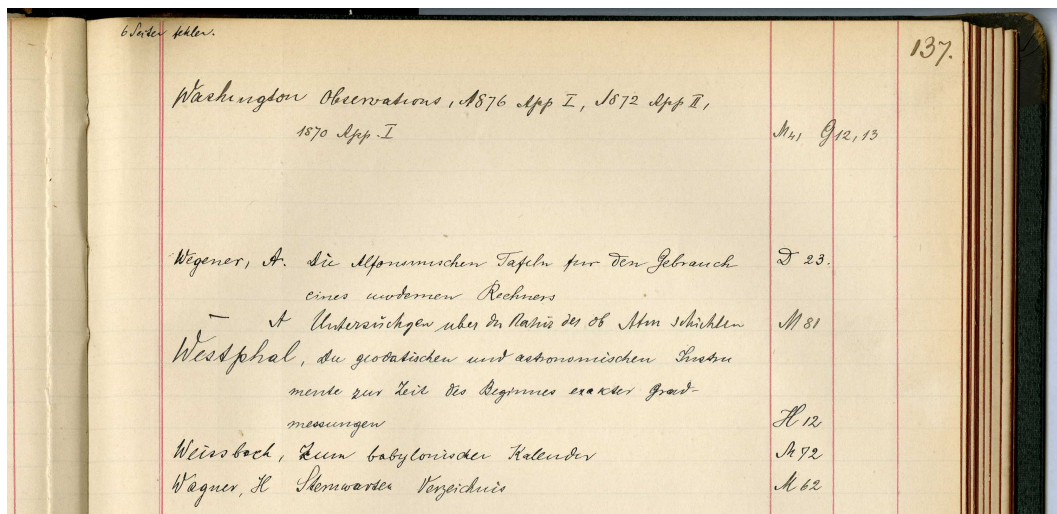 6 Seiten fehlen.
137.
Washington Observations, 1876 App I, 1872 App II,
1870 App. I M41 G12, 13
Wegener, A. Die Alfonsinischen Tafeln für den Gebrauch D 23.
eines modernen Rechners
— A Untersuchgen uber die Natur der ob Atm Schichten M 81
Westphal, Die geodätischen und astronomischen Instru
mente zur Zeit des Beginnes exakter Grad-
messungen H 12
Weissbach, Zum babylonischen Kalender M 72
Wagner, H Sternwarten Verzeichnis M 62